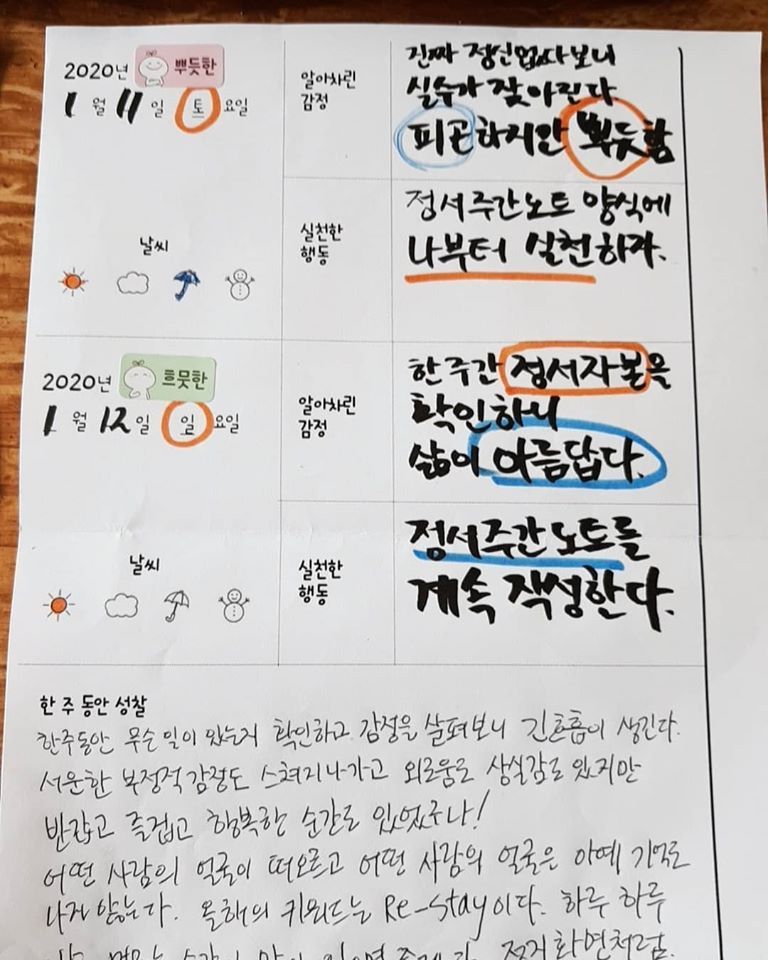 2020년 뿌듯한
1 월 11 일 토 요일
날씨
알아차린
감정
진짜 정신없다보니
실수가 잦아린다
피곤하지만 뿌듯함
실천한
행동
정서주간노트 양식에
나부터 실천하자.
2020년 흐뭇한
1 월 12 일 일 요일
날씨
알아차린
감정
한 주간 정서자본을
확인하니
삶이 아름답다.
실천한
행동
정서주간노트를
계속 작성한다.
한 주 동안 성찰
한주동안 무슨 일이 있는지 확인하고 감정을 살펴보니 긴호흡이 생긴다.
서운한 부정적 감정도 스쳐지나가고 외로움도 상실감도 있지만
반갑고 즐겁고 행복한 순간도 있었구나!
어떤 사람의 얼굴이 떠오르고 어떤 사람의 얼굴은 아예 기억도
나지 않는다. 올해의 키워드는 Re-stay이다. 하루 하루